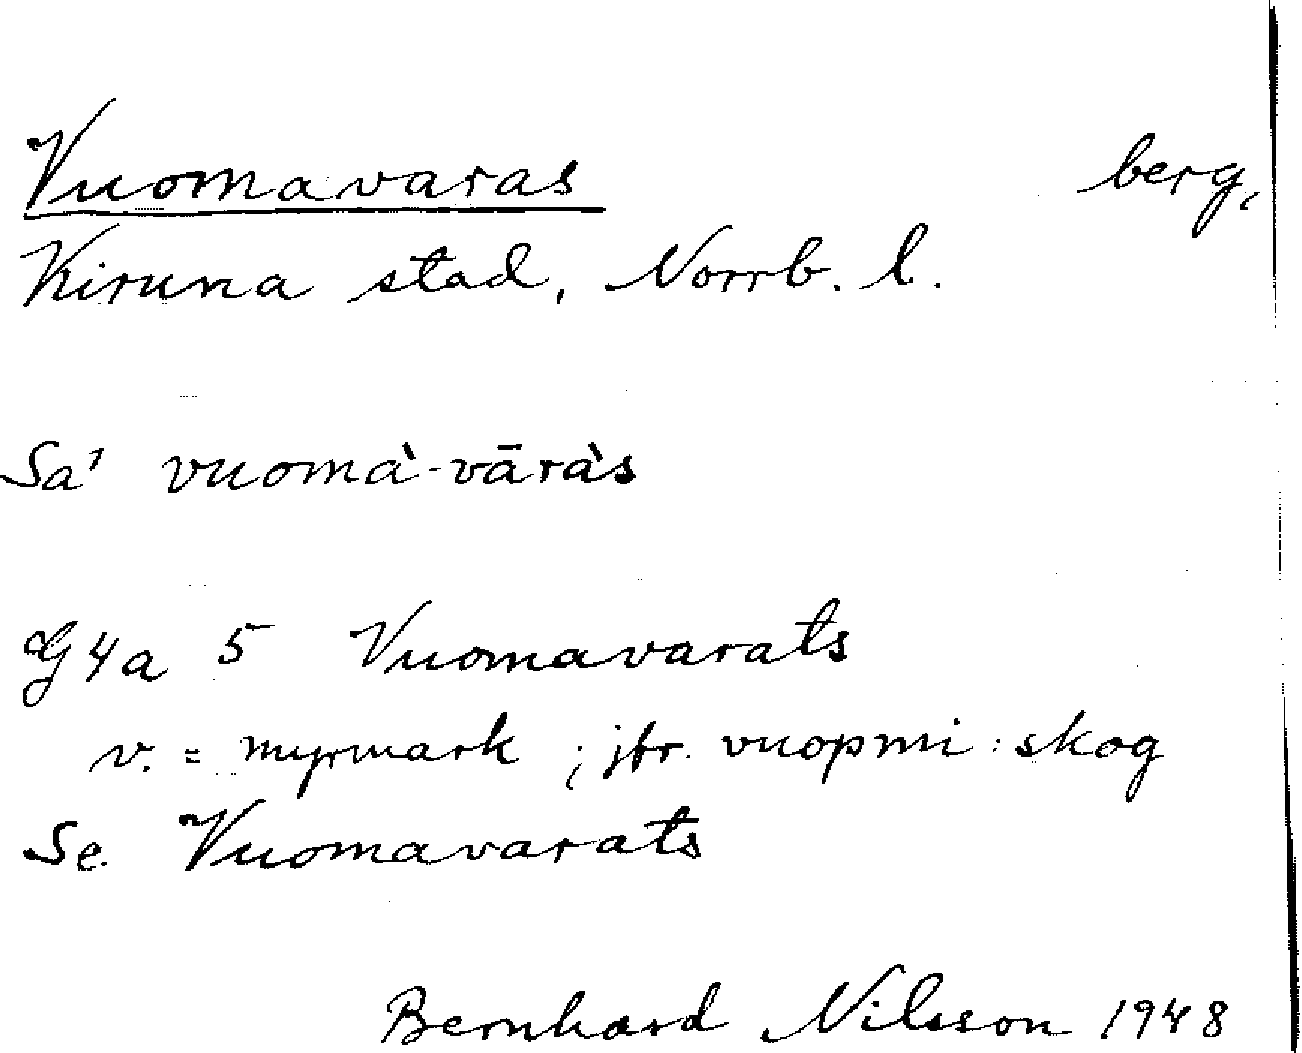 Vuomavaras berg,
Kiruna stad, Norrb. l.
Sa' vuomà-vāràs
G4a 5 Vuomavarats
v. = myrmark ; jfr. vuopmi : skog
Se Vuomavarats
Bernhard Nilsson 1948